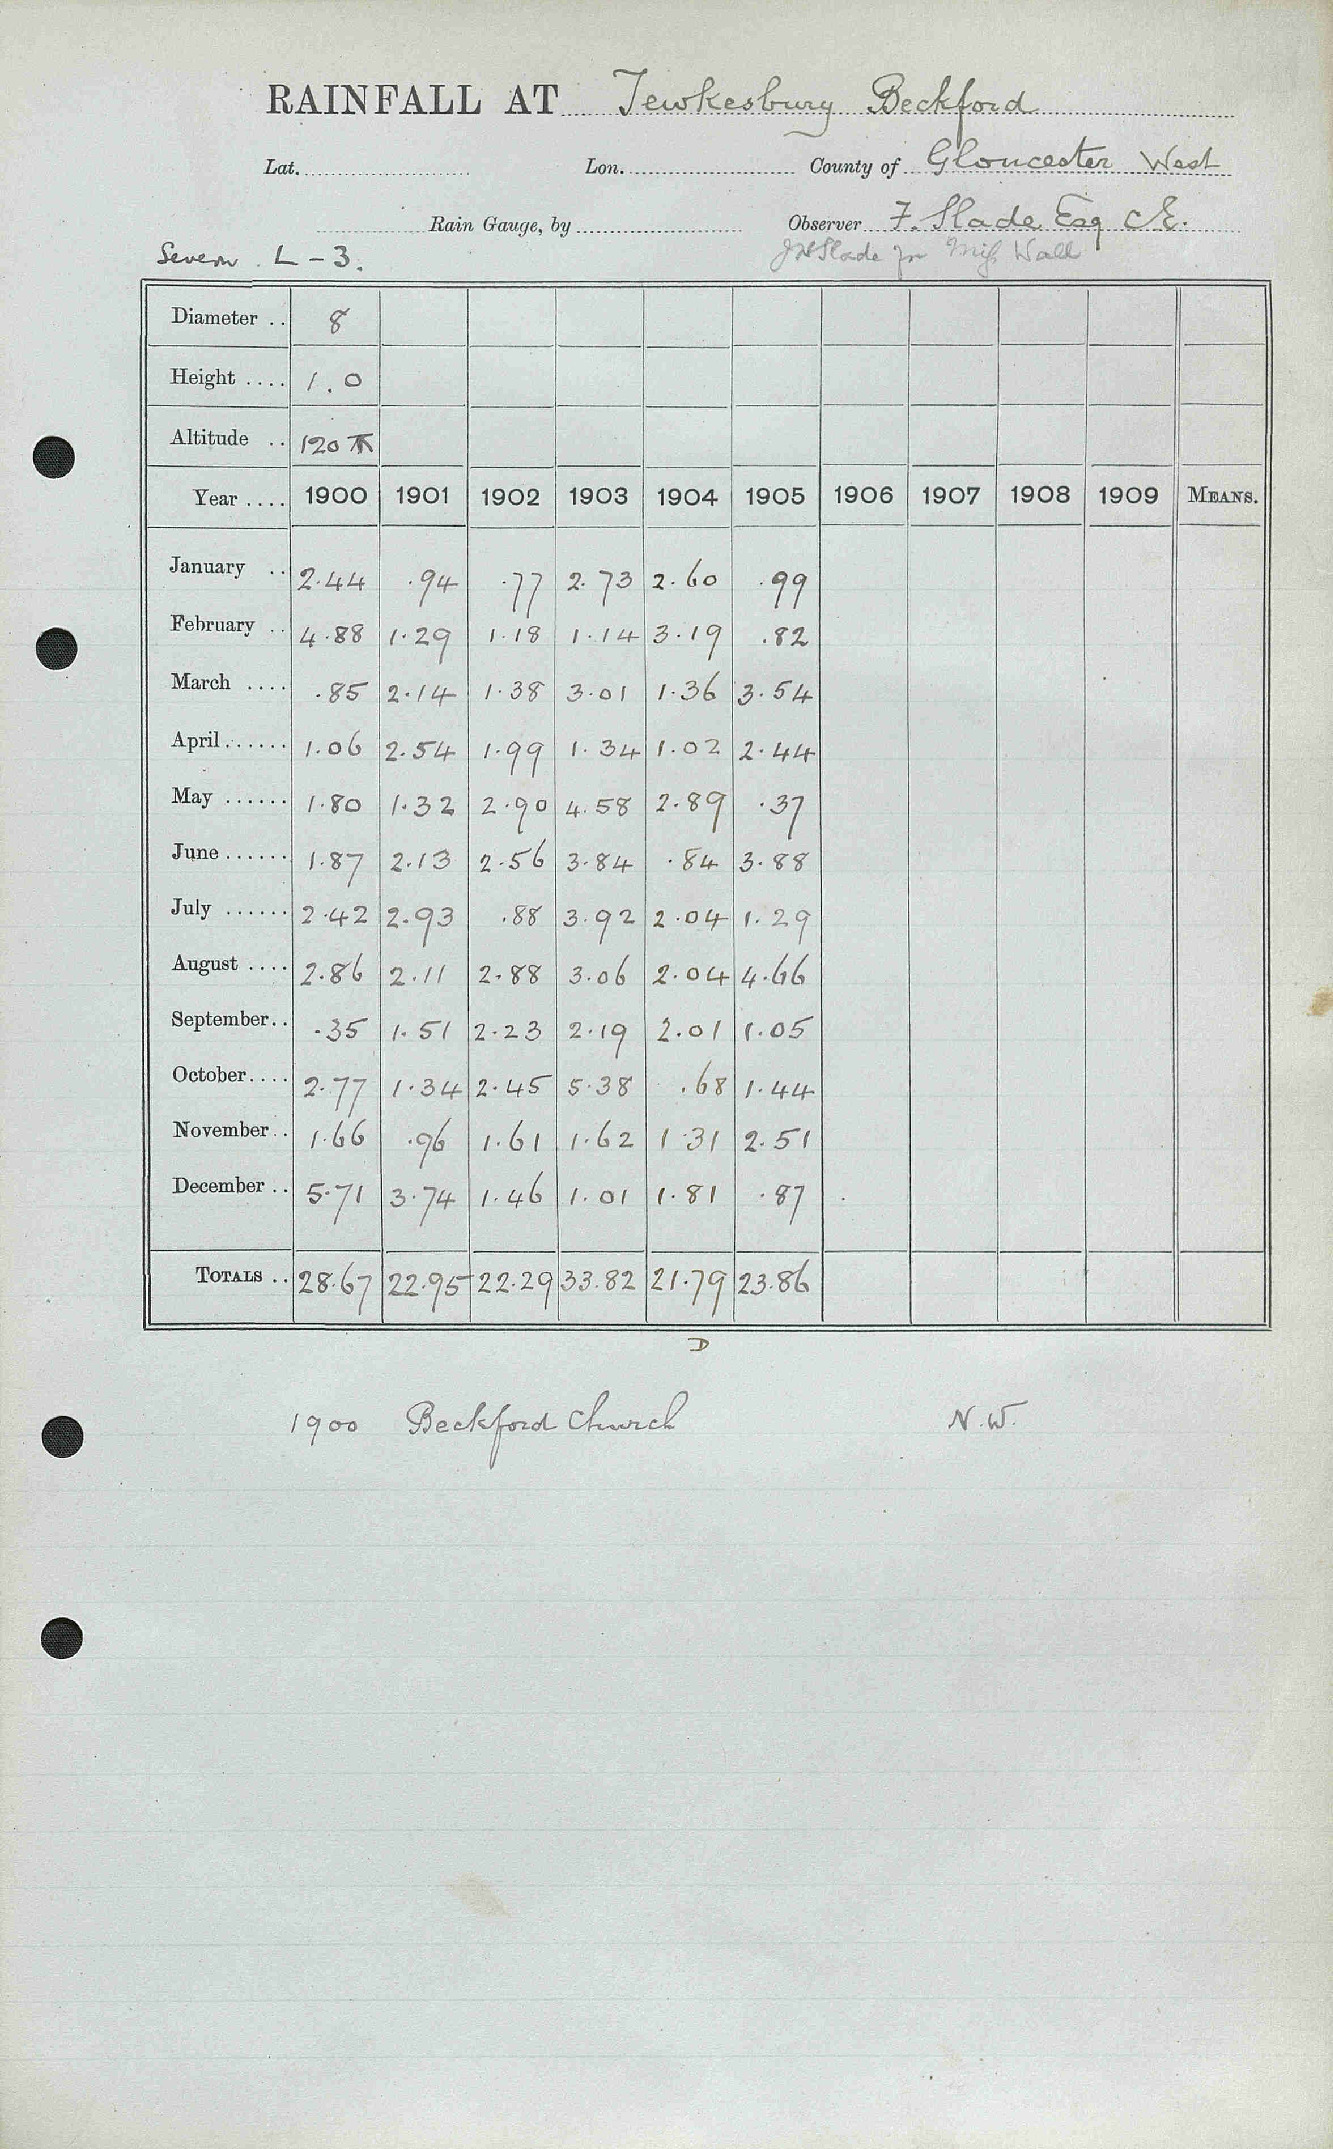 RAINFALL AT Tewkesbury Beckford
Lat. Lon. County of Gloucester West
Rain Gauge, by Observer F. Slade Esq C.E.
Severn L - 3. Slade for Miss Wall
Diameter .. 8
Height .... 1.0
Altitude .. 120
Year .... 1900 1901 1902 1903 1904 1905 1906 1907 1908 1909 MEANS.
January .. 2.44 .94 .77 2.73 2.60 .99
February .. 4.88 1.29 1.18 1.14 3.19 .82
March .... .85 2.14 1.38 3.01 1.36 3.54
April ...... 1.06 2.54 1.99 1.34 1.02 2.44
May ...... 1.80 1.32 2.90 4.58 2.89 .37
June ...... 1.87 2.13 2.56 3.84 .84 3.88
July ...... 2.42 2.93 .88 3.92 2.04 1.29
August .... 2.86 2.11 2.88 3.06 2.04 4.66
September.. .35 1.51 2.23 2.19 2.01 1.05
October.... 2.77 1.34 2.45 5.38 .68 1.44
November.. 1.66 .96 1.61 1.62 1.31 2.51
December .. 5.71 3.74 1.46 1.01 1.81 .87
TOTALS .. 28.67 22.95 22.29 33.82 21.79 23.86
D
1900 Beckford Church N.W.